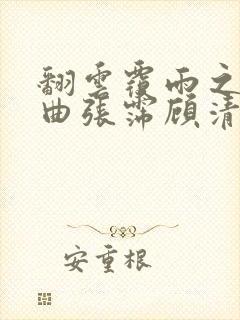 翻雲覆雨之
曲張霈顧清
安重根